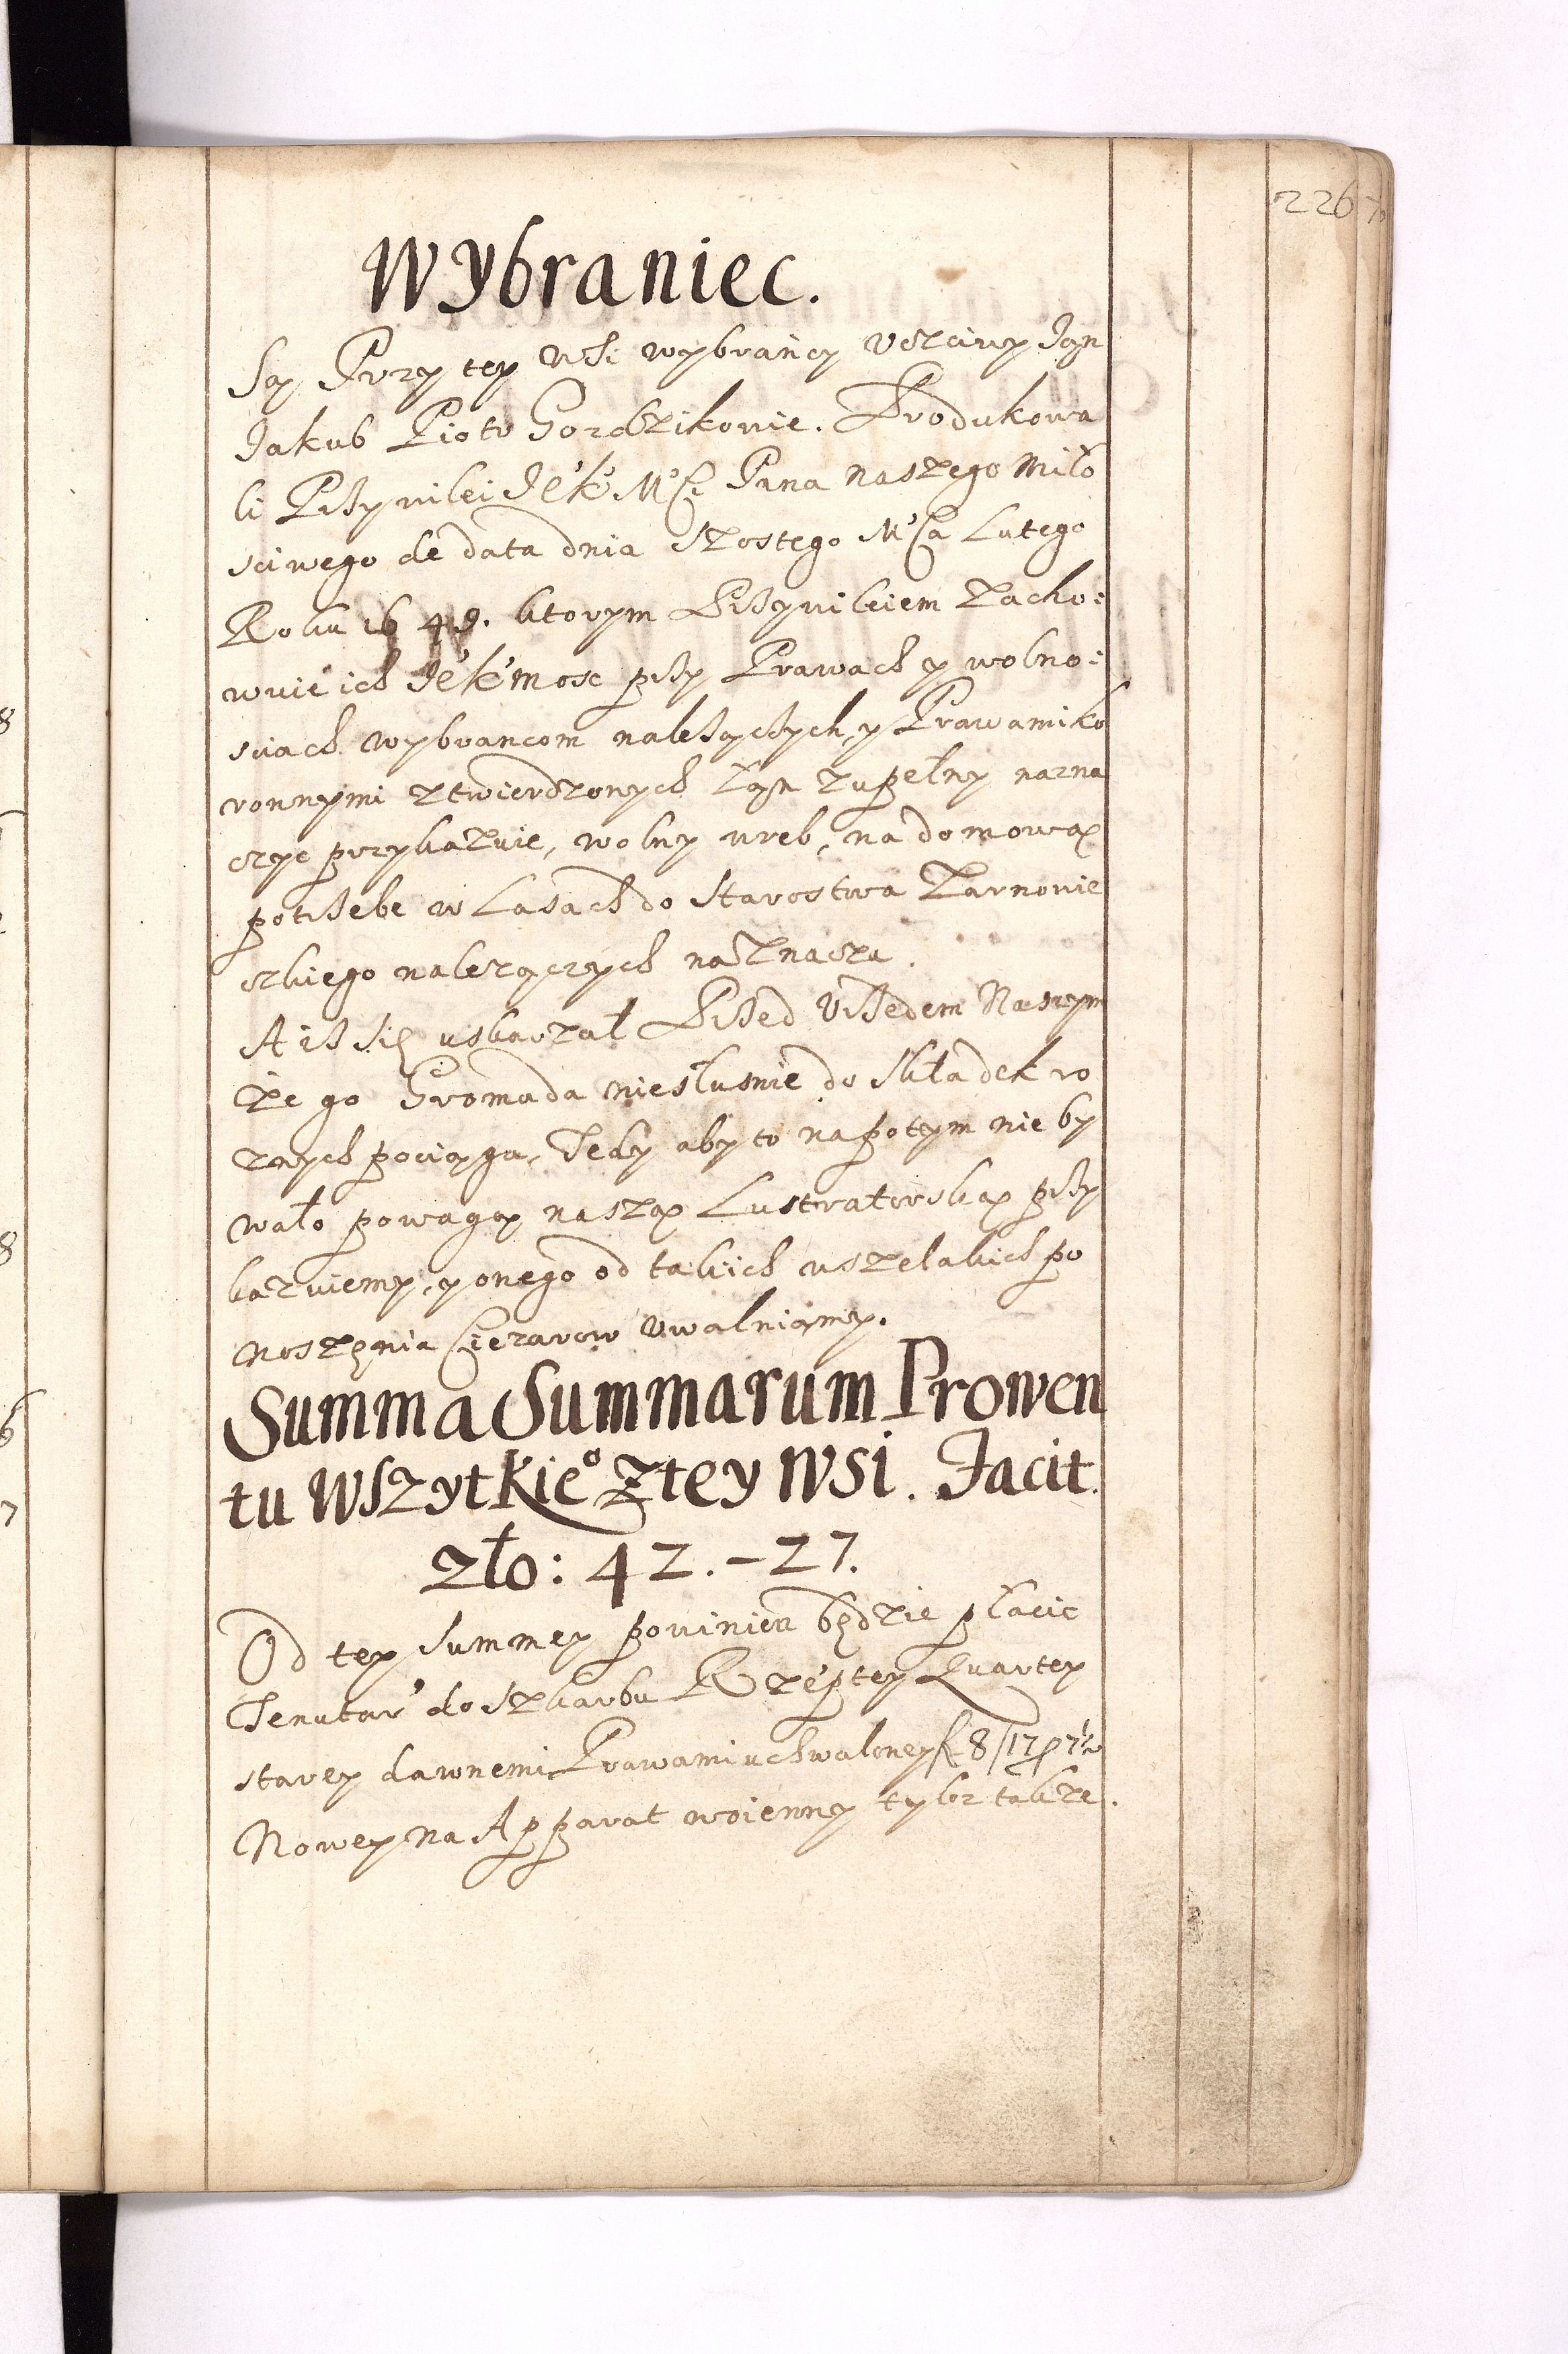 226
Wybraniec.
Są Przy tey wsi wybrańcy vczciwy Jąn
Jakub Piotr Produkowa
li Przywilei Je° K° M°Sci Pana naszego Miło
sciwego de data dnia Szostego M°Ca Lutego
Roku 1649. ktorym Przywileiem Zacho:
wuie ich Je° K° mosc przy Prawach y wolno:
sciach wybrancom należących, y Prawami ko
ronnymi ztwierdzonych Łąn zupełny nazna
czyc przykazuie, wolny wreb, na domową
potrzebe w Lasach do Starostwa Zarnowie
ckiego należączych naznacza.
A iż się uskarzał Przed Vrzedem Naszym
Ze go Gromada niesłusnie do składek ro
znych pociąga, Tedy aby to napotym nie by
wało powagą naszą Lustratorską przy
kazuiemy, y onego od takich wszelakich po
noszęnia Cięzarow vwalniąmy.
Summa Summarum Prowen
tu Wszytkie° Z tey WSi. Facit.
zło: 42. – 27.
Od tey Summey powinien będzie płacic
Tenutar' do Szkarbu Rzeptey Kwartey
starey dawnemi Prawami uchwaloney f 8/17
Nowey na Apparat woienny tylez takze.